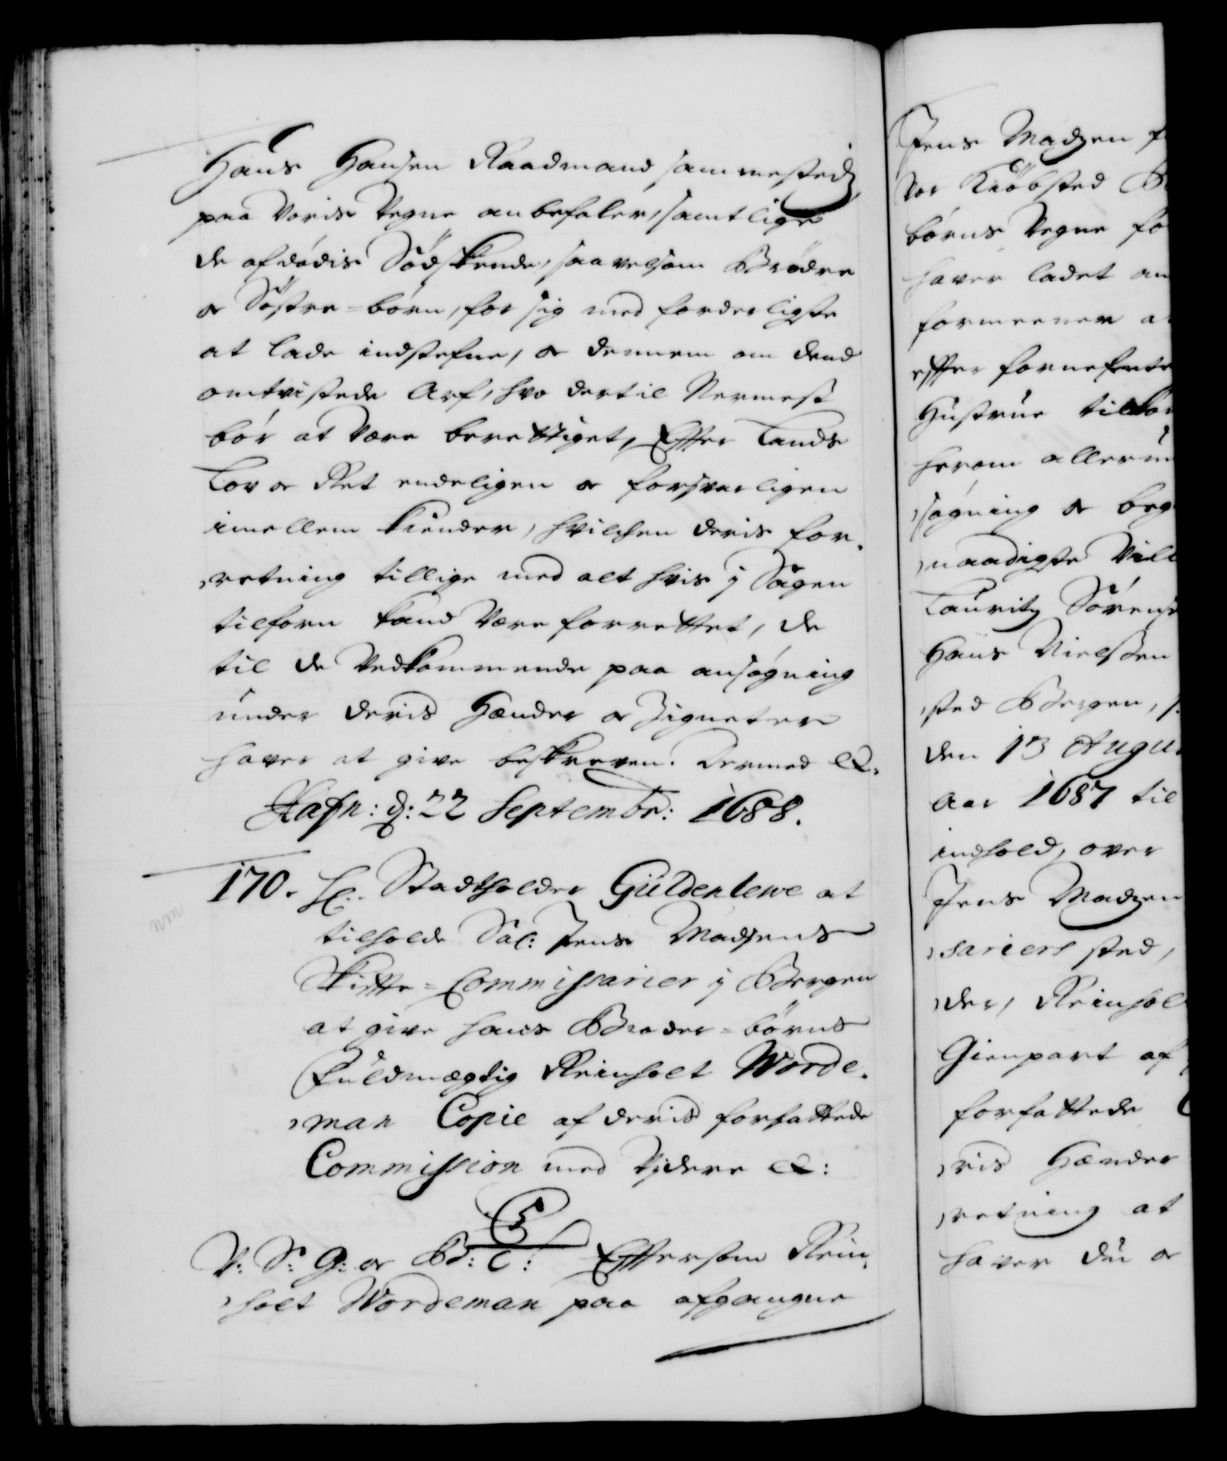 Hans Hansen Raadmand sammesteds
paa Voris Vegne anbefaler, samtlige
de afdødis Södskende, saavelsom Brødre
og Søstre-børn, for sig med forderligste
at lade indstefne, og dennem om dend
omtvistede Arf, hvo dertil Nermest
bør at Være berettiget, Effter Lands
Lov og Ret endeligen og forsvarligen
imellem Kiender, hvilchen deris for-
retning tillige med alt hvis i Sagen
tilforn kand Være forrettet, de
til de Vedkommende paa ansøgning
under deris Hænder og Signeter
haver at give beskreven. Dermed &.
Hafn: d: 22 Septembr: 1688.
170. H:. Stadtholder Güldenlewe at
tilholde Sal: Jens Madsens
Skiffte-Commissarier i Bergen
at give hans Broder-børns
Fuldmægtig Reinholt Worde-
man Copie af deris forfattede
Commission med Videre &:
C5
V: S: G: og Bd: C: Effersom Rein-
holt Wordeman paa afgangne
Jens Madzen
Vor Kiöbsted B
børns Vegne fo
haver ladet an
formeener a
effter fornefnte
Hustrue tilkom
herom allerun
søgning og beg
naadigste Vill
Lauritz Sörens
Hans Nielssen
sted Bergen,
den 13 Augu
Aar 1687 til
indhold, over
Jens Madzen
sariers sted,
der, Reinhol
Gienpart af
forfattede
ris Hænder
retning at
haver du og